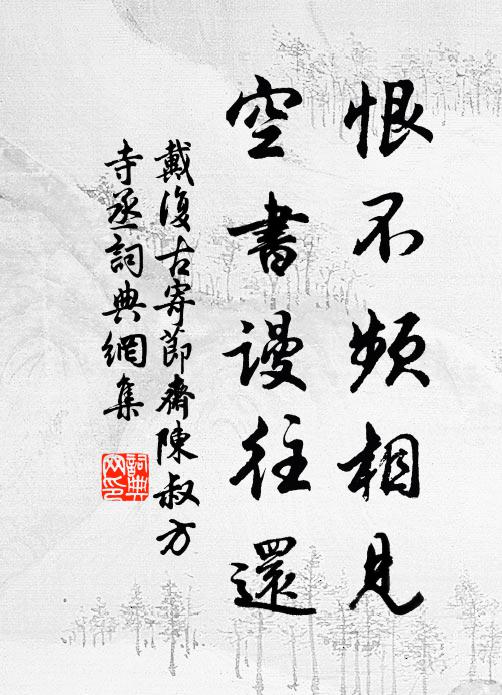 恨不頻相見
空書謾往還
戴復古寄節齋陳叔方
寺丞詞典網集
詞典網印